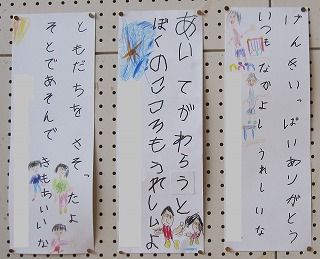 げんきいっぱいありがとう
いつもなかよしうれしいな
あいてがわろうと
ぼくのこころもうれしいよ
ともだちをさそったよ
そとであそんで
きもちいいな